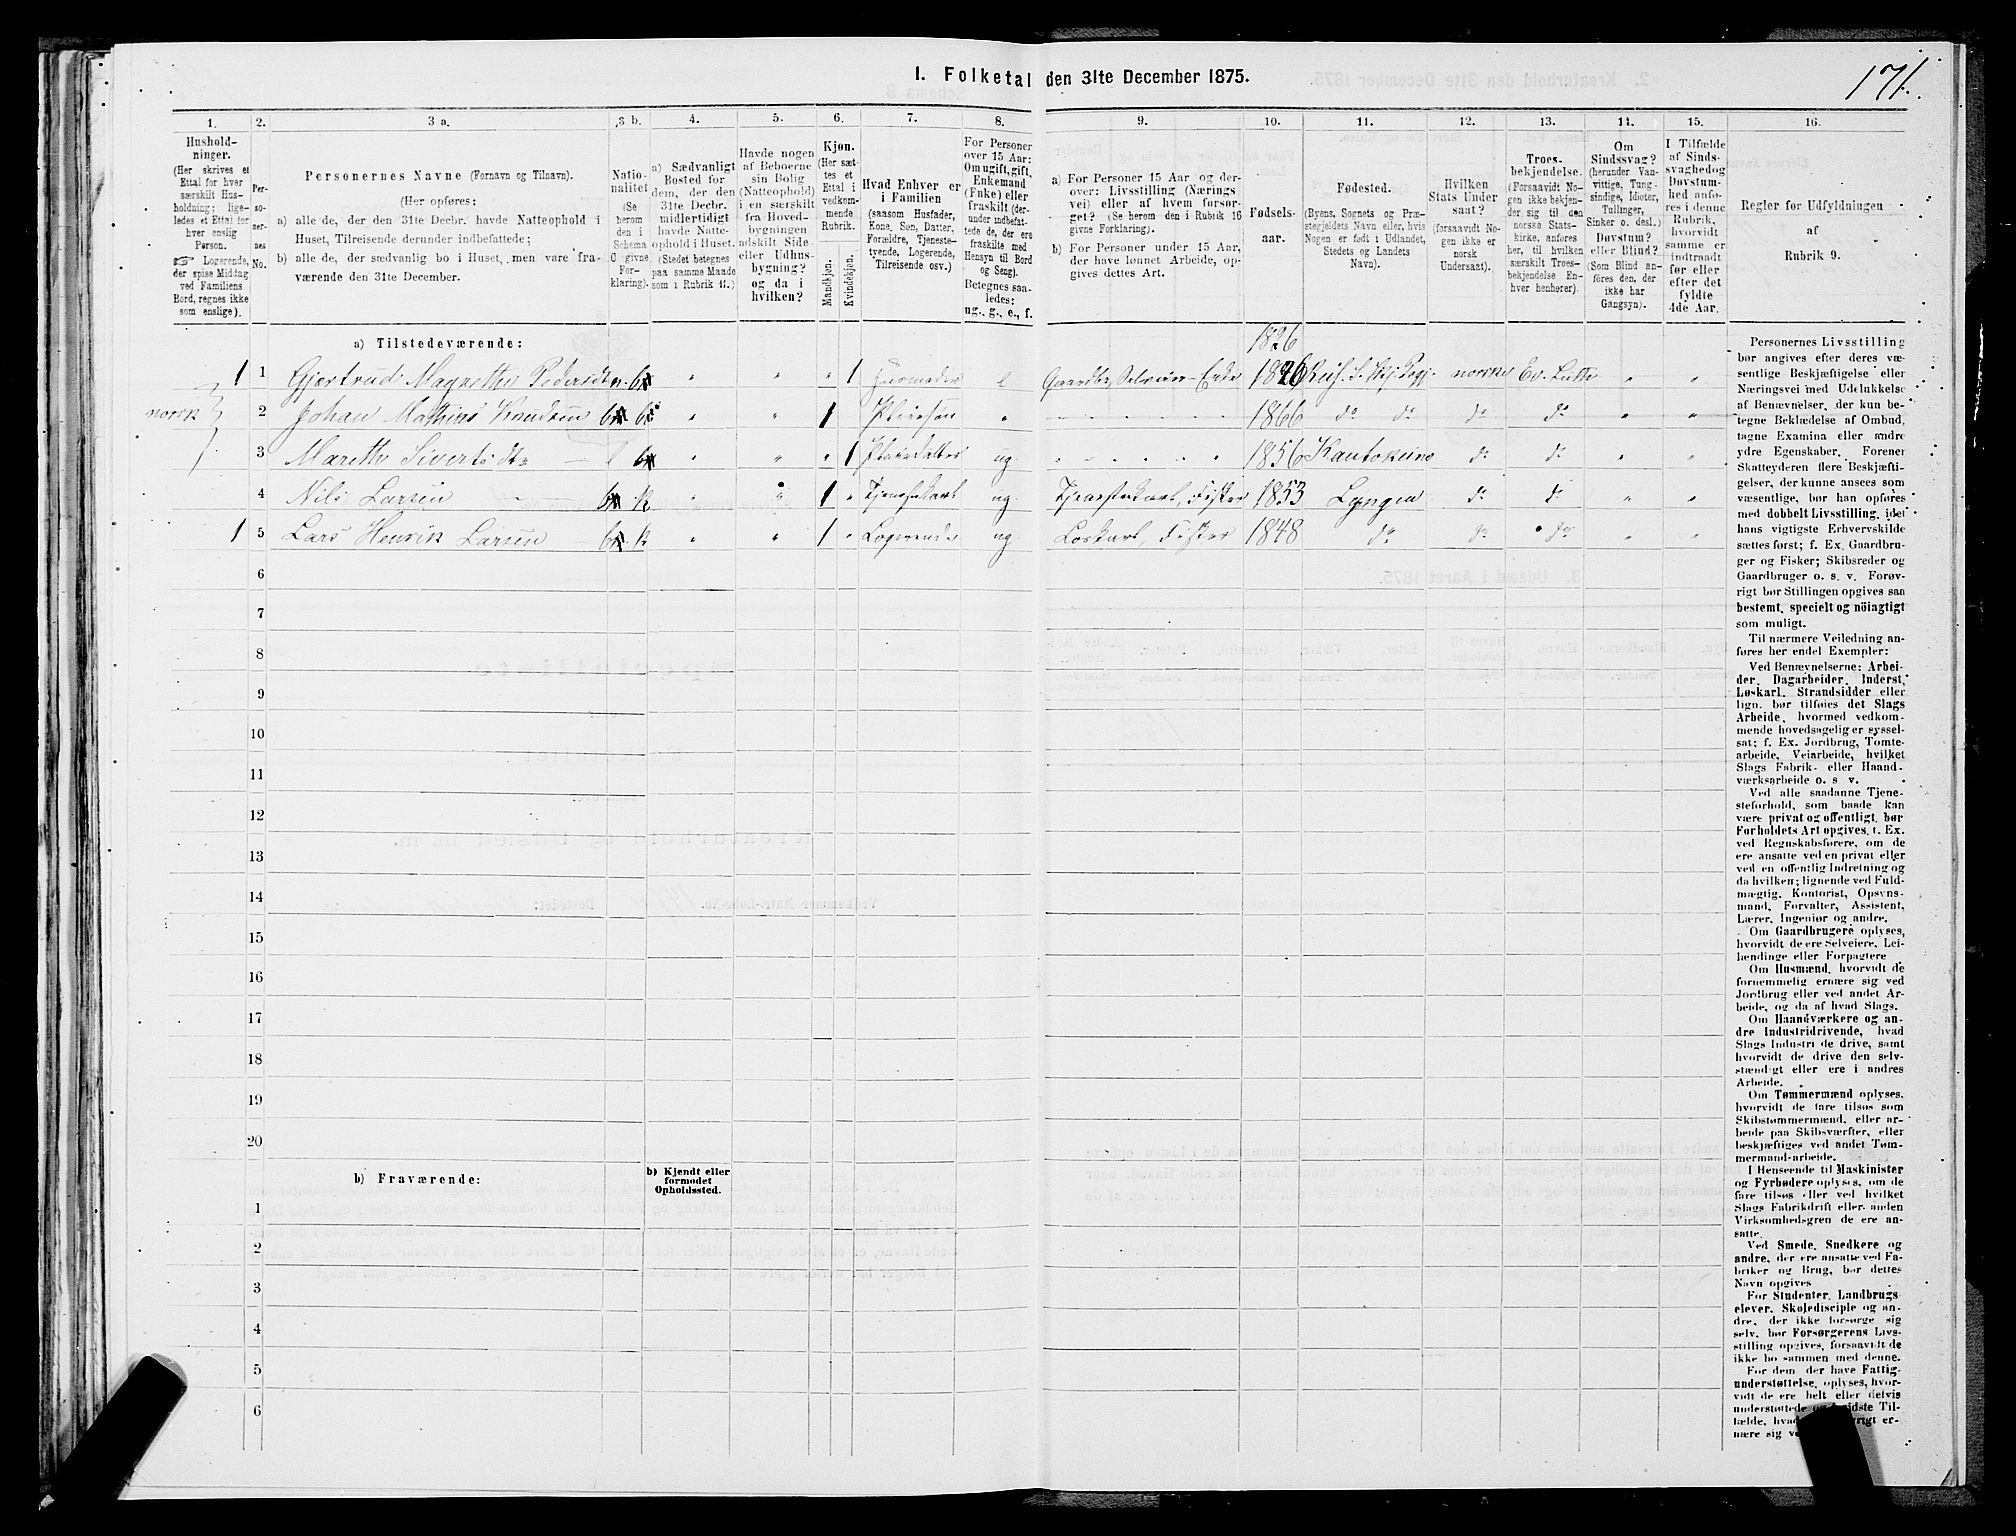 1. Folketal den 31te December 1875.
171.
1.
2.
3 a.
3 b.
4.
5.
6.
7.
8.
9.
10.
11.
12.
13.
14.
15.
16.
Hushold-
ninger.
(Her skrives et
Ettal for hver
særskilt Hus-
holdning; lige-
ledes et Ettal for
hver enslig
Person.
☞ Logerende,
der spise Middag
ved Familiens
Bord, regnes ikke
som enslige).
Per-
so-
ner-
nes
No.
Personernes Navne (Fornavn og Tilnavn).
(Her opføres:
a) alle de, der den 31te Decbr. havde Natteophold i
Huset, Tilreisende derunder indbefattede;
b) alle de, der sædvanlig bo i Huset, men vare fra-
værende den 31te December.
Natio-
nalitet
(Se
herom
den i
Schema
C givne
For-
klaring).
a) Sædvanligt
Bosted for
dem, der den
31te Decbr.
midlertidigt
havde Natte-
ophold i Huset.
(Stedet betegnes
paa samme Maade
som i Rubrik 11.)
Havde nogen
af Beboerne
sin Bolig
(Natteophold)
i en særskilt
fra Hoved-
bygningen
adskilt Side-
eller Udhus-
bygning?
og da i
hvilken?
Kjøn.
(Her sæt-
tes et
Ettal i
vedkom-
mende
Rubrik.
Mandkjøn.
Kvindekjøn.
Hvad Enhver er
i Familien
(saasom Husfader,
Kone, Søn, Datter,
Forældre, Tjeneste-
tyende, Logerende,
Tilreisende osv.)
For Personer
over 15 Aar:
Om ugift, gift,
Enkemand
(Enke) eller
fraskilt (der-
under indbefat-
tede de, der ere
fraskilte med
Hensyn til Bord
og Seng).
Betegnes saa-
ledes:
ug., g., e., f.
a) For Personer 15 Aar og der-
over: Livsstilling (Nærings
vei) eller af hvem forsør-
get? (Se herom den i Rubrik 16
givne Forklaring).
b) For Personer under 15 Aar,
der have lønnet Arbeide, op-
gives dettes Art.
Fødsels-
aar.
Fødested.
(Byens, Sognets og Præ-
stegjeldets Navn eller, hvis
Nogen er født i Udlandet,
Stedets og Landets
Navn).
Hvilken
Stats Under
saat?
(forsaavidt No-
gen ikke er
norsk
Undersaat).
Troes-
bekjendelse.
(Forsaavidt No-
gen ikke bekjen-
der sig til den
norske Stats-
kirke, anføres
her, til hvilken
særskilt Troes-
bekjendelse En-
hver henhører).
Om
Sindssvag?
(herunder Van-
vittige, Tung-
sindige, Idioter,
Tullinger,
Sinker o. desl.)
Døvstum?
eller Blind?
(Som Blind an-
føres den, der
ikke har
Gangsyn).
I Tilfælde
af Sinds-
svaghed og
Døvstum-
hed anfø-
res i denne
Rubrik,
hvorvidt
samme er
indtraadt
før eller
efter det
fyldte
4de Aar.
Regler for Udfyldningen
af
Rubrik 9.
a) Tilstedeværende:
1826
1 1 Gjertrud Magrethe Pedersdtr. 1 Husmoder e Gaardbr. Selveier Enke 1826 norsk Ev. Luth
norsk
2 Johan Mathias Knudsen 1 Pleiesøn 1866 do do do do
3 Marethe Siverts dtr 1 Pleiedatter ug. 1856 Kautokeino do do
4 Nils Larsen 1 Tjenestekarl ug. Tjenestekarl, Fisker 1853 Lyngen do do
1 5 Lars Henrik Larsen 1 Logerende ug. Løskarl, Fisker 1848 do do do
6
7
8
9
10
11
12
13
14
15
16
17
18
19
20
b) Fraværende:
b) Kjendt eller
formodet
Opholdssted.
1
2
3
4
5
6
Personernes Livsstilling
bør angives efter deres væ-
sentlige Beskjæftigelse eller
Næringsvei med Udelukkelse
af Benævnelser, der kun be-
tegne Beklædelse af Ombud,
tagne Examina eller andre
ydre Egenskaber. Forener
Skatteyderen flere Beskjæfti-
gelser, der kunne ansees som
væsentlige, bør han opføres
med dobbelt Livsstilling, idet
hans vigtigste Erhvervskilde
sættes først; f. Ex. Gaardbru-
ger og Fisker; Skibsreder og
Gaardbruger o. s. v. Forøv-
rigt bør Stillingen opgives saa
bestemt, specielt og nöiagtigt
som muligt.
Til nærmere Veiledning an-
føres her endel Exempler:
Ved Benævnelserne: Arbei-
der, Dagarbeider, Inderst,
Løskarl, Strandsidder eller
lign. bør tilføies det Slags
Arbeide, hvormed vedkom-
mende hovedsagelig er syssel-
sat; f. Ex. Jordbrug, Tomte-
arbeide, Veiarbeide, hvilket
Slags Fabrik- eller Haand-
værksarbeide o. s v.
Ved alle saadanne Tjene-
steforhold, som baade kan
være privat og offentligt, bør
Forholdets Art opgives, t. Ex.
ved Regnskabsførere, om de
ere ansatte ved en privat eller
ved en offentlig Indretning og
da hvilken; lignende ved Fuld-
mægtig, Kontorist, Opsyns-
mand, Forvalter, Assistent,
Lærer, Ingeniør og andre.
Om Gaardbrugere oplyses,
hvorvidt de ere Selveiere, Lei-
lændinge eller Forpagtere
Om Husmænd, hvorvidt de
fornemmelig ernære sig ved
Jordbrug eller ved andet Ar-
beide, og da af hvad Slags.
Om Haandværkere og an-
dre Industridrivende, hvad
Slags Industri de drive, samt
hvorvidt de drive den selv-
stændigt eller ere i andres
Arbeide.
Om Tømmermænd oplyses,
hvorvidt de fare tilsøs som
Skibstømmermænd, eller ar-
beide paa Skibsværfter, eller
beskjæftiges ved andet Tøm-
mermand-arbeide.
I Henseende til Maskinister
og Fyrbødere oplyses, om de
fare tilsøs eller ved hvilket
Slags Fabrikdrift eller anden
Virksomhedsgren de ere an-
satte.
Ved Smede, Snedkere og
andre, der ere ansatte ved Fa-
briker og Brug, bør dettes
Navn opgives
For Studenter, Landbrugs
elever, Skoledisciple og an-
dre, der ikke forsørge sig
selv, bør Forsørgerens Livs-
stilling opgives, forsaavidt de
ikke bo sammen med denne.
For dem, der have Fattig-
understøttelse, oplyses, hvor-
vidt de ere helt eller delvis
understøttede og i sidste Til-
fælde, hvad
nære sig